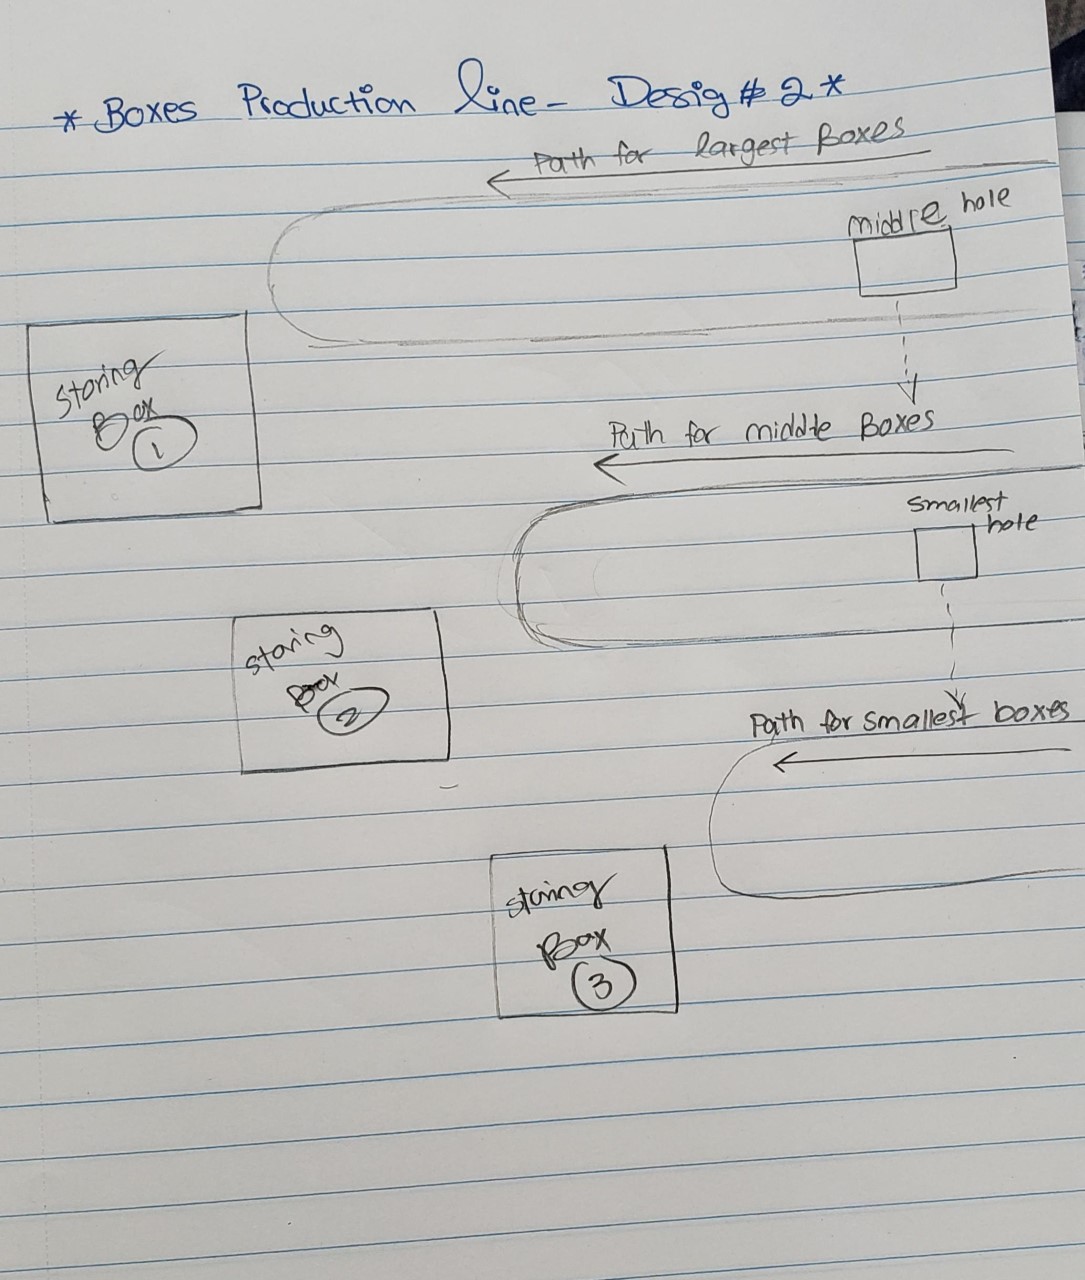 * Boxes Production line - Desig # 2 *
Path for largest Boxes
middle hole
Storing
Box
1
Path for middle Boxes
smallest
hole
storing
Box
2
Path for smallest boxes
storing
Box
3